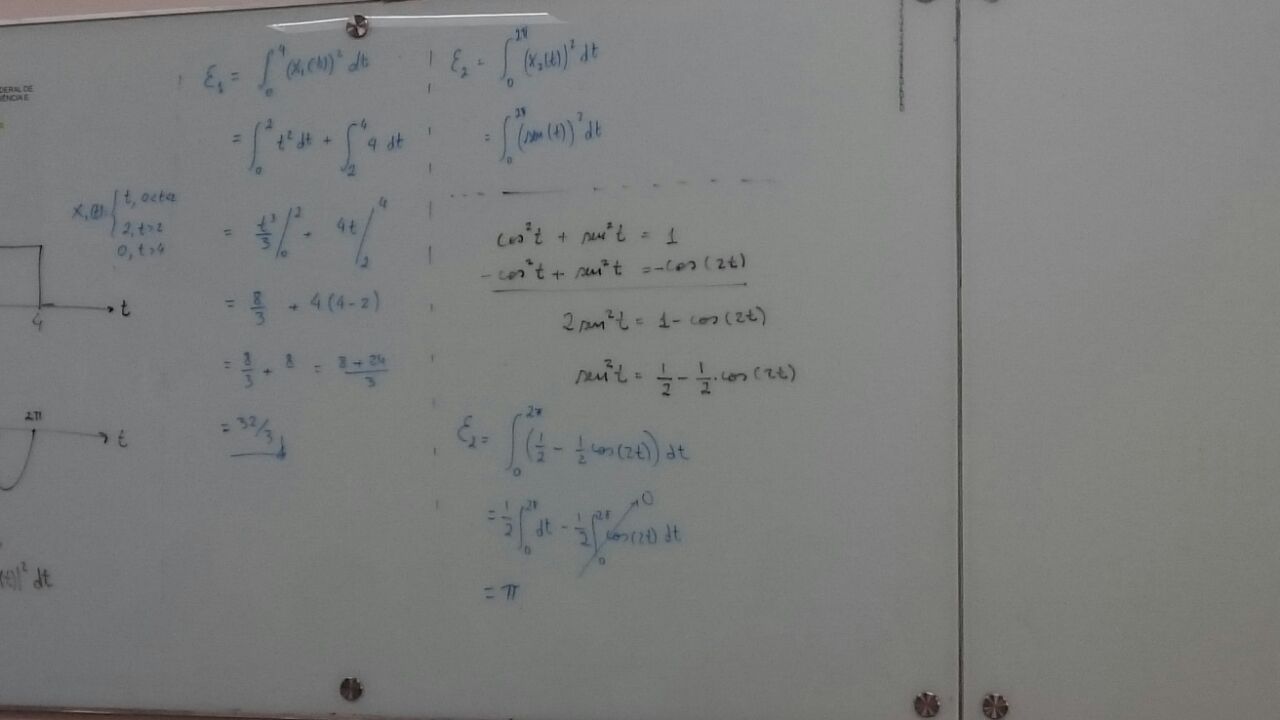 DERAL DE
ÊNCIA E
x₁(t) { t, 0<t<2
2, t>2
0, t>4
t
4
2π
t
(t)|² dt
ℰ₁ = ∫₀⁴ (x₁(t))² dt
= ∫₀² t² dt + ∫₂⁴ 4 dt
= t³/3 /₀² + 4t /₂⁴
= 8/3 + 4(4-2)
= 8/3 + 8 = (8+24)/3
= 32/3
ℰ₂ = ∫₀^2π (x₂(t))² dt
= ∫₀^2π (sen(t))² dt
cos²t + sen²t = 1
-cos²t + sen²t = -cos(2t)
2sen²t = 1 - cos(2t)
sen²t = 1/2 - 1/2·cos(2t)
ℰ₂ = ∫₀^2π (1/2 - 1/2 cos(2t)) dt
= 1/2 ∫₀^2π dt - 1/2 ∫₀^2π cos(2t) dt → 0
= π